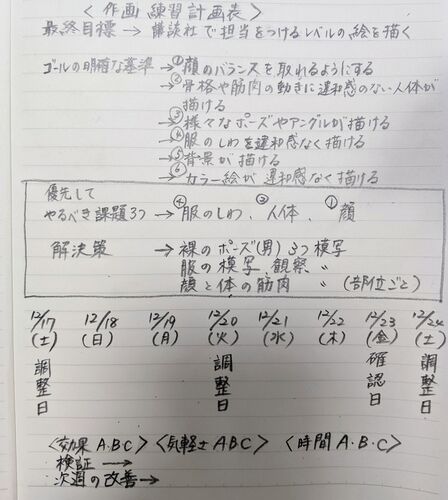 ＜作画練習計画表＞
最終目標 → 講談社で担当をつけるレベルの絵を描く
ゴールの明確な基準→①顔のバランスを取れるようにする
→②骨格や筋肉の動きに違和感のない人体が
描ける
→③様々なポーズやアングルが描ける
→④服のしわを違和感なく描ける
→⑤背景が描ける
→⑥カラー絵が違和感なく描ける
優先して
やるべき課題3つ → ④服のしわ、②人体、①顔
解決策 → 裸のポーズ(男) 3つ模写
服の模写、観察 〃
顔と体の筋肉 〃 (部位ごと)
12/17 12/18 12/19 12/20 12/21 12/22 12/23 12/24
(土) (日) (月) (火) (水) (木) (金) (土)
調整日 調整日 確認日 調整日
＜効果A・B・C＞ ＜気軽さABC＞ ＜時間A・B・C＞
検証 →
次週の改善→